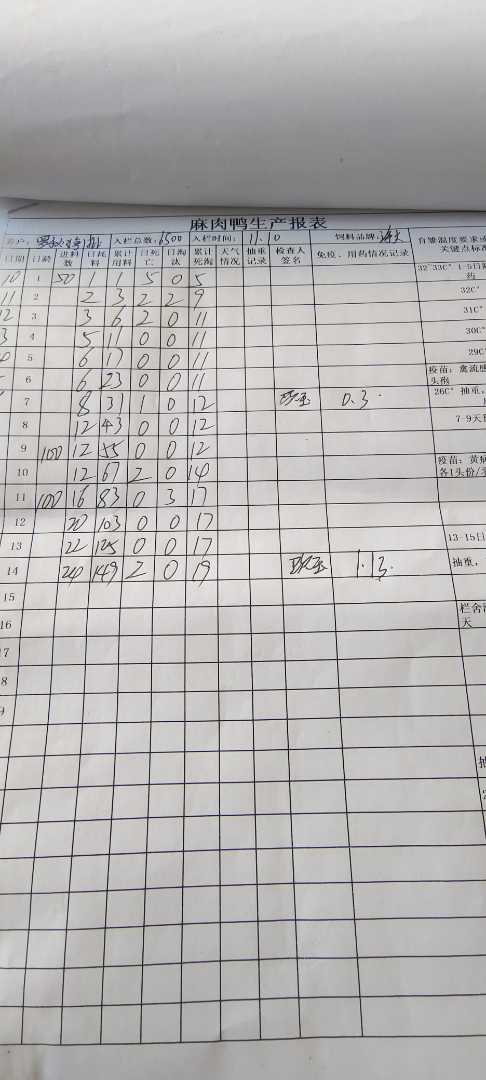 麻肉鸭生产报表
客户: 入栏总数: 6500 入栏时间: 11.10 饲料品牌: 育雏温度要求或 关键点标准
日期 日龄 进料数 日耗料 累计用料 日死亡 日淘汰 累计死淘 天气情况 抽重记录 检查人签名 免疫、用药情况记录
10 1 50 1 1 5 0 5 32-33C° 1-5日 药
11 2 2 3 2 2 9 32C°
12 3 3 6 2 0 11 31C°
3 4 5 11 0 0 11 30C°
5 6 17 0 0 11 29C°
6 6 23 0 0 11 疫苗: 禽流感 头份
7 8 31 1 0 12 0.3. 26C° 抽重,
8 12 43 0 0 12 7-9天
9 100 12 55 0 0 12
10 12 67 2 0 14 疫苗: 黄病 各1头份/
11 100 16 83 0 3 17
12 20 103 0 0 17
13 22 125 0 0 17 13-15日
14 24 149 2 0 19 1.13. 抽重,
15
16 栏舍 天
17
8
9
抽